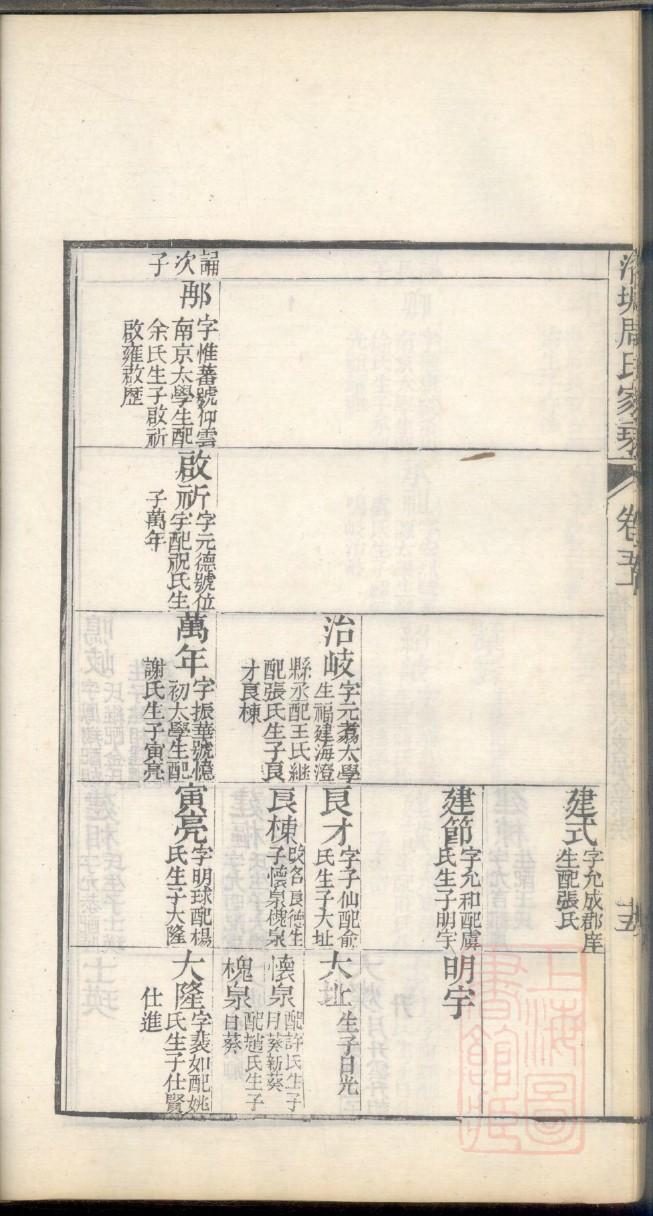 塘周氏家
卷五
十五
建式
字允成郡庠
生配張氏
建節
字允和配虞
氏生子明宇
明宇
治岐
字元蕘太學
生福建海澄
縣丞配王氏繼
配張氏生子良
才良棟
良才
字子仙配俞
氏生子大址
大址
生子日光
良棟
改名良德生
子懷泉槐泉
懷泉
配許氏生子
月葵新葵
槐泉
配趙氏生子
日葵
誦
次
子
郍
字惟蕃號仰雲
南京太學生配
余氏生子啟祈
啟雍啟歷
啟祈
字元德號位
宇配祝氏生
子萬年
萬年
字振華號憶
初太學生配
謝氏生子寅亮
寅亮
字明球配楊
氏生子大隆
大隆
字裴如配姚
氏生子仕賢
仕進
上海圖
書館藏